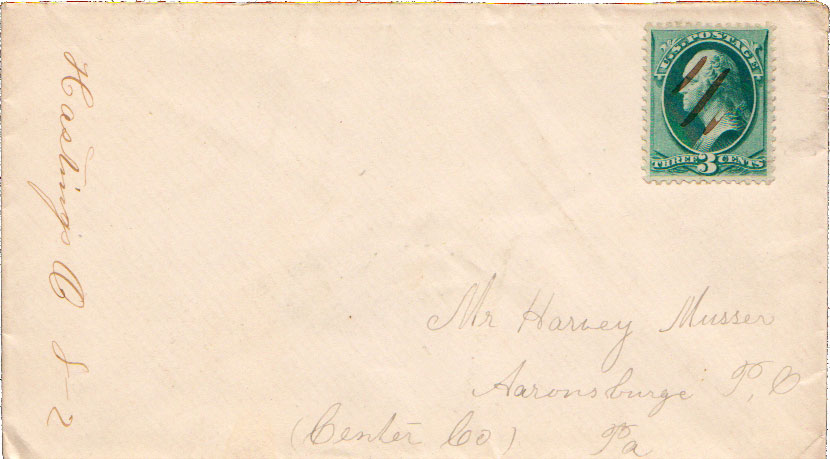 Hastings O 8-2
U.S. POSTAGE
THREE 3 CENTS
Mr Harvey Musser
Aaronsburge P, O
(Center Co) Pa